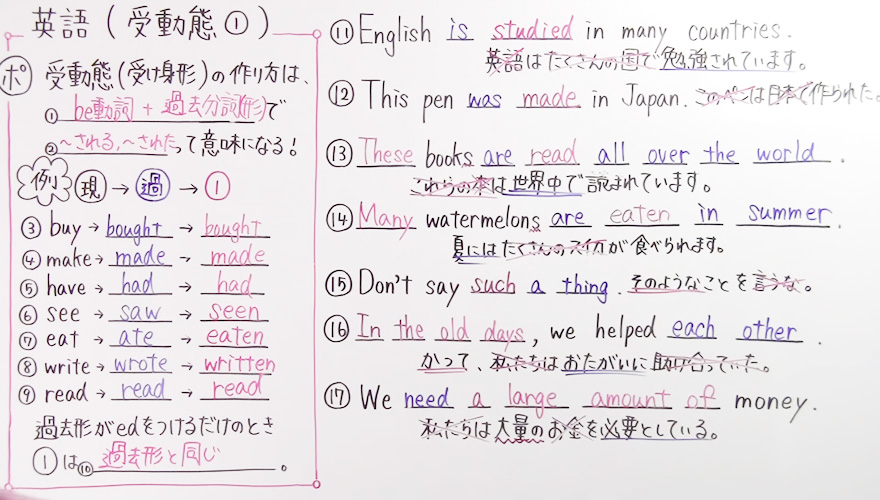 英語(受動態①)
ポ 受動態(受け身形)の作り方は、
① be動詞+過去分詞(形)で
② ~される,~されたって意味になる!
例 現→過→①
③ buy→bought→bought
④ make→made→made
⑤ have→had→had
⑥ see→saw→seen
⑦ eat→ate→eaten
⑧ write→wrote→written
⑨ read→read→read
過去形がedをつけるだけのとき
①は⑩過去形と同じ。
⑪ English is studied in many countries.
英語はたくさんの国で勉強されています。
⑫ This pen was made in Japan. このペンは日本で作られた。
⑬ These books are read all over the world.
これらの本は世界中で読まれています。
⑭ Many watermelons are eaten in summer.
夏にはたくさんのスイカが食べられます。
⑮ Don't say such a thing. そのようなことを言うな。
⑯ In the old days, we helped each other.
かって、私たちはおたがいに助け合っていた。
⑰ We need a large amount of money.
私たちは大量のお金を必要としている。